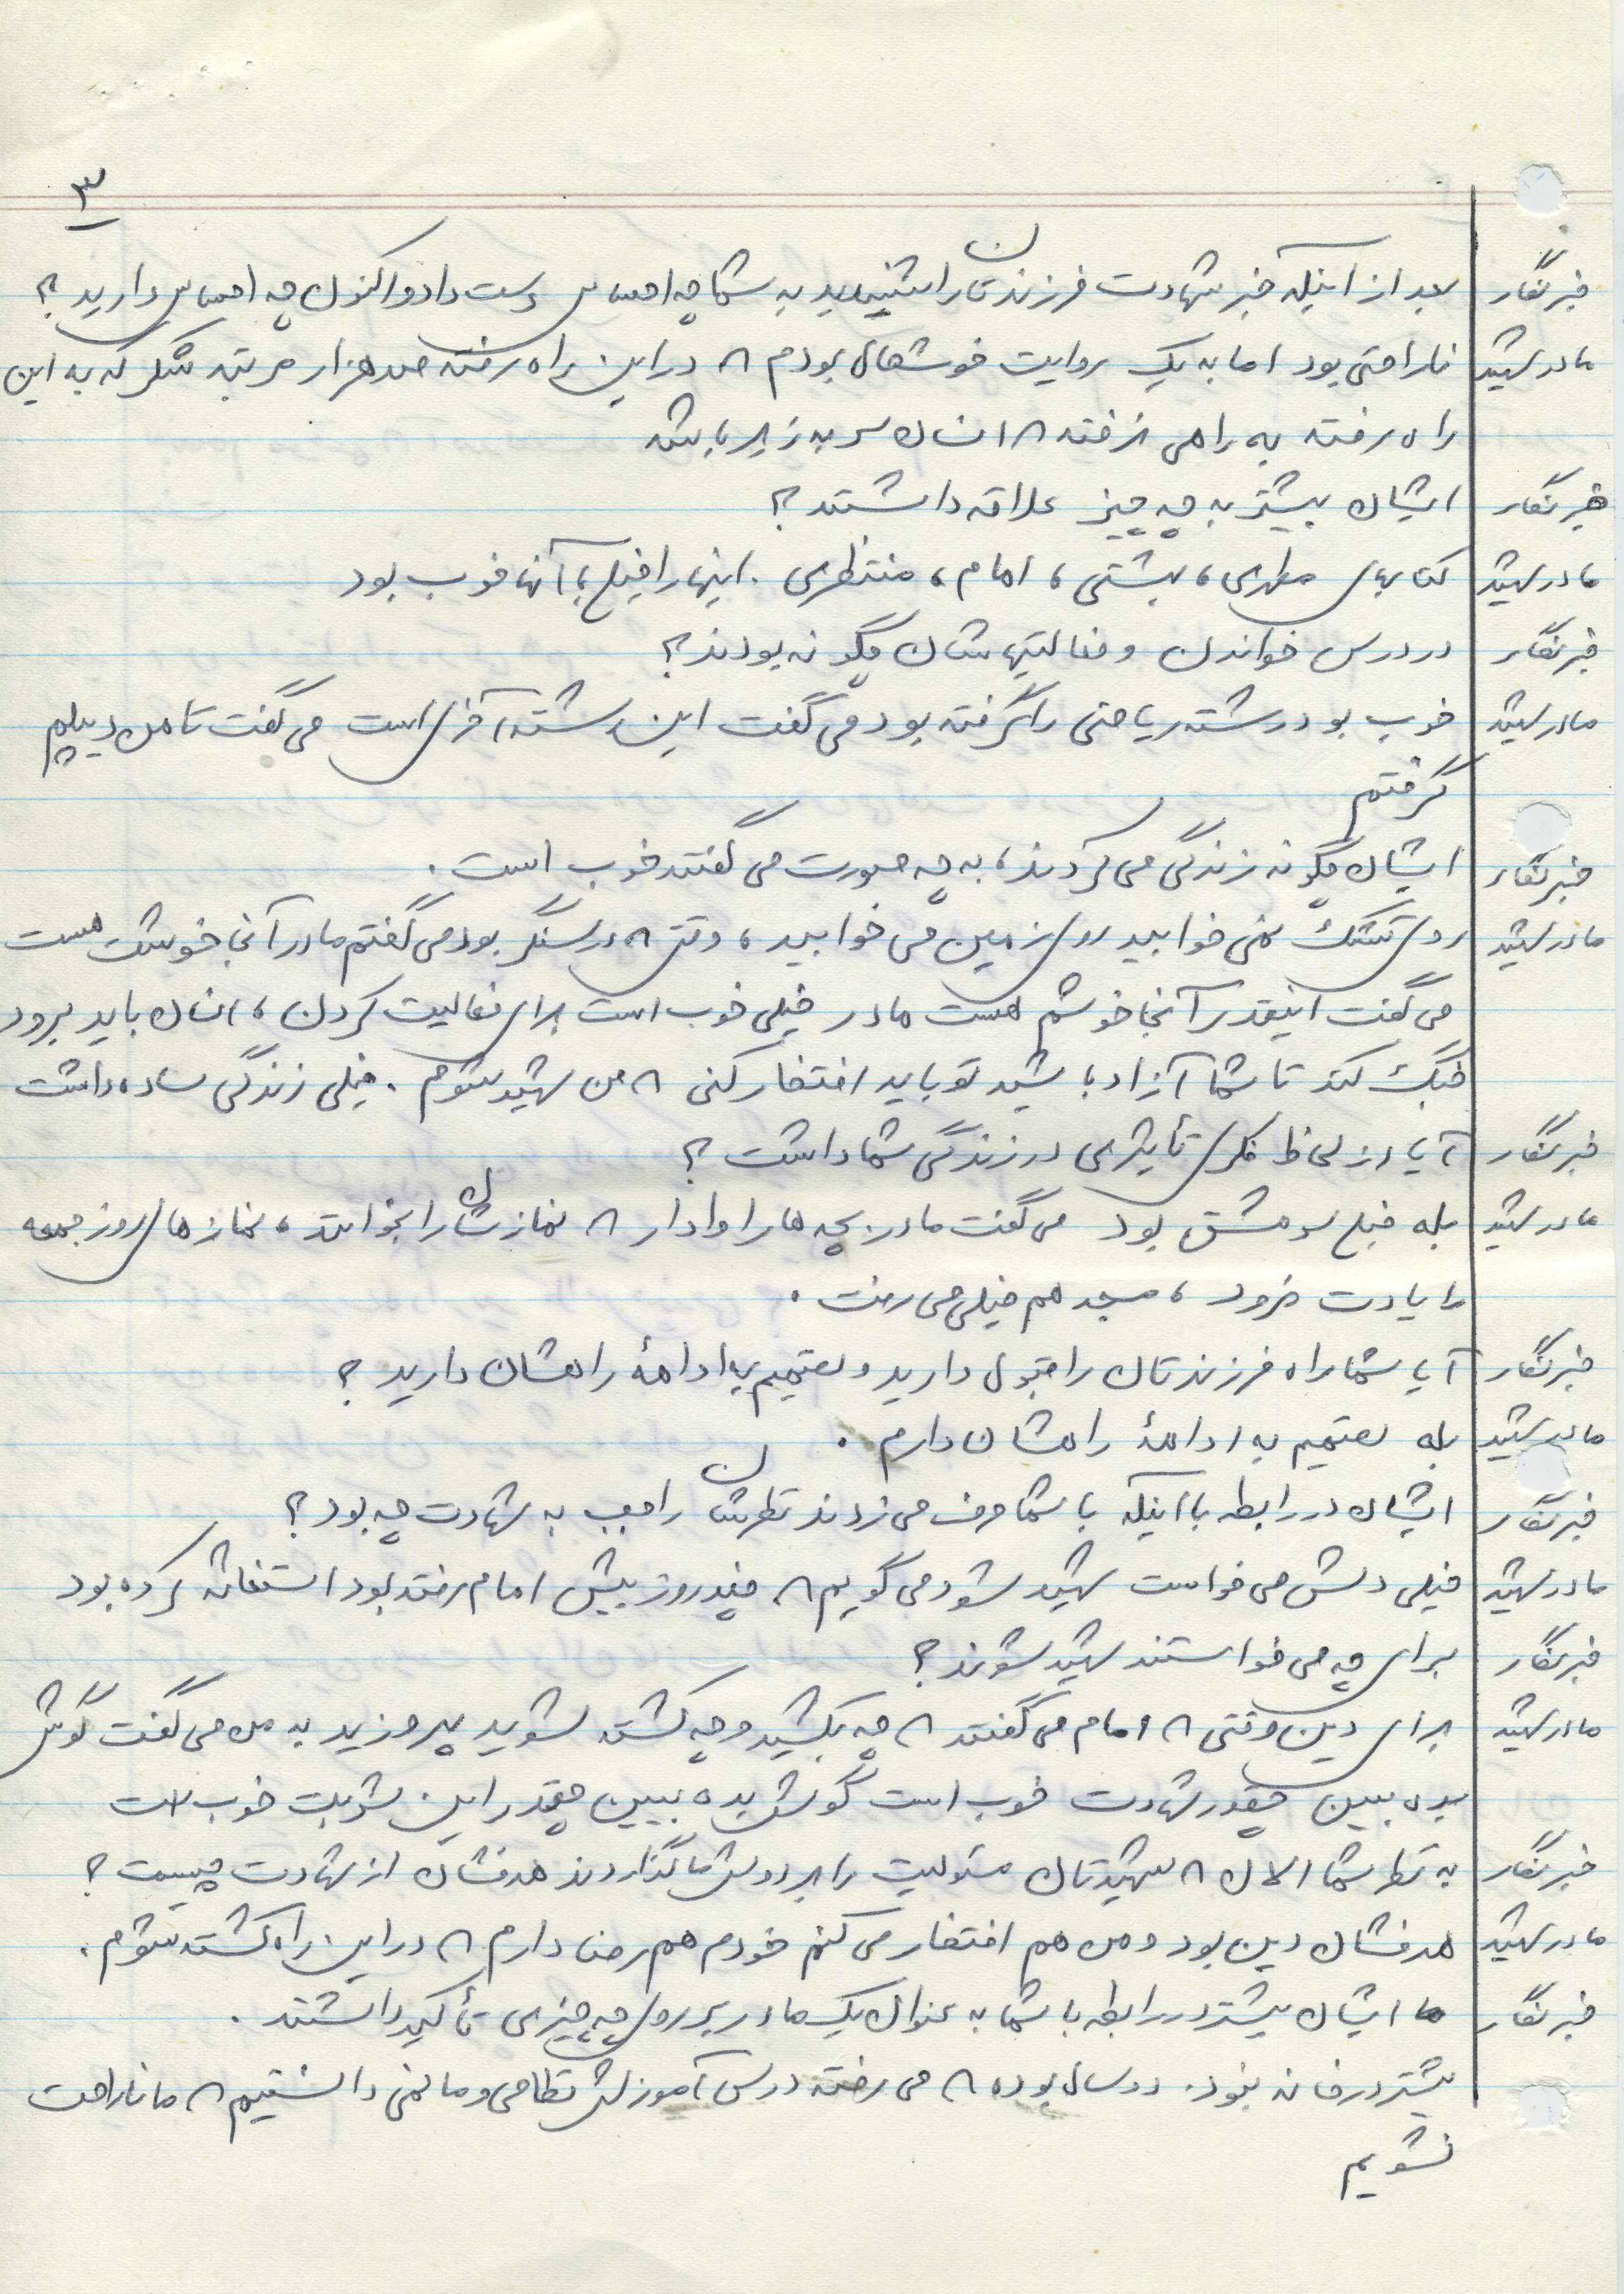 ۳
خبرنگار بعد از اینکه خبر شهادت فرزندتان را شنیدید به شما چه احساسی دست داد و اکنون چه احساسی دارید؟
مادر شهید ناراحتی بود اما به یک روایت خوشحال بودم ۸ در این راه رفته صد هزار مرتبه شکر که به این
راه رفته به راهی نرفته ۸ انسان سر به زیر باشد
خبرنگار ایشان بیشتر به چه چیز علاقه داشتند؟
مادر شهید کتابهای مطهری، بهشتی، امام، منتظری. اینها را خیلی با آنها خوب بود
خبرنگار در درس خواندن و فعالیتهایشان چگونه بودند؟
مادر شهید خوب بود رشته ریاضی را گرفته بود می گفت این رشته آخری است می گفت تا من دیپلم
گرفتم
خبرنگار ایشان چگونه زندگی می کردند، به چه صورت می گفتند خوب است.
مادر شهید روی تشک نمی خوابید روی زمین می خوابید، وقتی ۸ در سنگر بود می گفتم مادر آنجا خوشت هست
می گفت اینقدر آنجا خوشم هست مادر خیلی خوب است برای فعالیت کردن، انسان باید برود
جنگ کند تا شما آزاد باشید تو باید افتخار کنی ۸ من شهید شوم. خیلی زندگی ساده داشت
خبرنگار آیا از لحاظ فکری تأثیری در زندگی شما داشت؟
مادر شهید بله خیلی سرمشق بود می گفت مادر بچه ها را وادار ۸ نمازشان را بخوانند، نمازهای روز جمعه
را یادت نرود، مسجد هم خیلی می رفت.
خبرنگار آیا شما راه فرزندتان را قبول دارید و تصمیم به ادامهٔ راهشان دارید؟
مادر شهید بله تصمیم به ادامهٔ راهشان دارم.
خبرنگار ایشان در رابطه با اینکه با شما حرف می زدند نظرشان راجب به شهادت چه بود؟
مادر شهید خیلی دلش می خواست شهید شود می گویم ۸ چند روز پیش امام رفته بود استغاثه کرده بود
خبرنگار برای چه می خواستند شهید شوند؟
مادر شهید برای دین وقتی ۸ امام می گفتند ۸ چه بکشید و چه کشته شوید پیروزید به من می گفت گوش
بده ببین چقدر شهادت خوب است گوش بده ببین چقدر این شربت خوب است
خبرنگار به نظر شما الان ۸ شهیدتان مسئولیت را بر دوش ما گذاردند هدفشان از شهادت چیست؟
مادر شهید هدفشان دین بود و من هم افتخار می کنم خودم هم رضا دارم ۸ در این راه کشته شوم.
خبرنگار ما ایشان بیشتر در رابطه با شما به عنوان یک مادر بر روی چه چیزی تأکید داشتند.
بیشتر در خانه نبود. دو سال بوده ۸ می رفته درس آموزش نظامی و ما نمی دانستیم ۸ ما ناراحت
نشویم